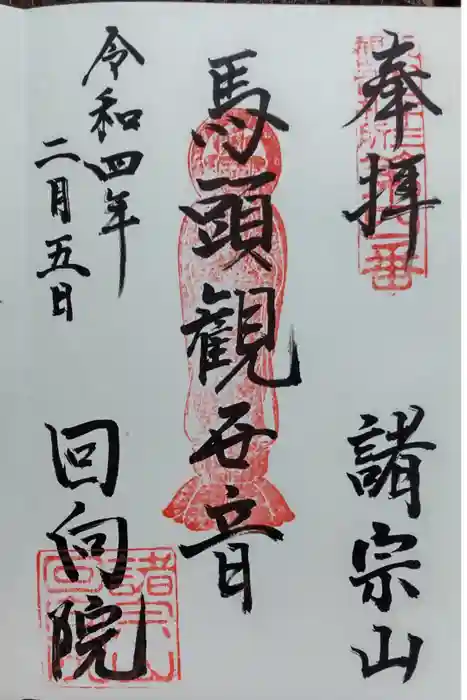 奉拝
諸宗山
馬頭観世音
令和四年
二月五日
回向院